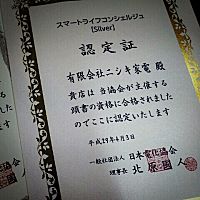 スマートライフコンシェルジュ
[Silver]
認定証
有限会社ニシキ家電 殿
貴店は 当協会が主催する
頭書の資格に合格されました
のでここに認定いたします
平成29年4月3日
一般社団法人 日本電化協会
理事長 北 人